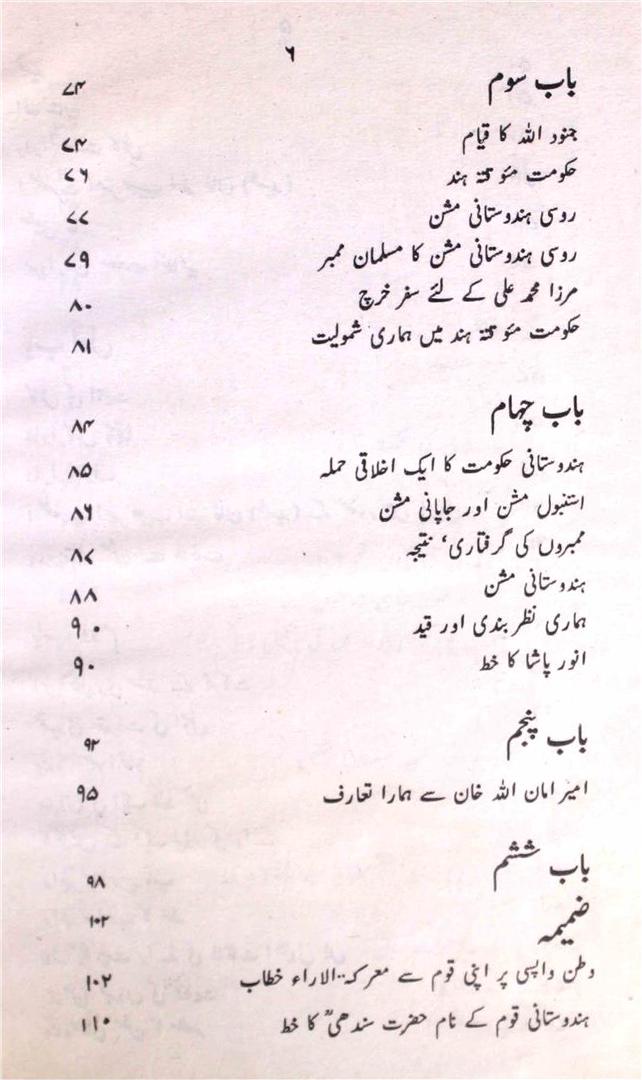 ۶
باب سوم ۷۴
جنود اللہ کا قیام ۷۴
حکومت مئوقتہ ہند ۷۶
روسی ہندوستانی مشن ۷۷
روسی ہندوستانی مشن کا مسلمان ممبر ۷۹
مرزا محمد علی کے لئے سفر خرچ ۸۰
حکومت مئوقتہ ہند میں ہماری شمولیت ۸۱
باب چہام ۸۴
ہندوستانی حکومت کا ایک اخلاقی حملہ ۸۵
استنبول مشن اور جاپانی مشن ۸۶
ممبروں کی گرفتاری‘ نتیجہ ۸۷
ہندوستانی مشن ۸۸
ہماری نظر بندی اور قید ۹۰
انور پاشا کا خط ۹۰
باب پنجم ۹۲
امیر امان اللہ خان سے ہمارا تعارف ۹۵
باب ششم ۹۸
ضمیمہ ۱۰۲
وطن واپسی پر اپنی قوم سے معرکۃ الاراء خطاب ۱۰۲
ہندوستانی قوم کے نام حضرت سندھیؒ کا خط ۱۱۰